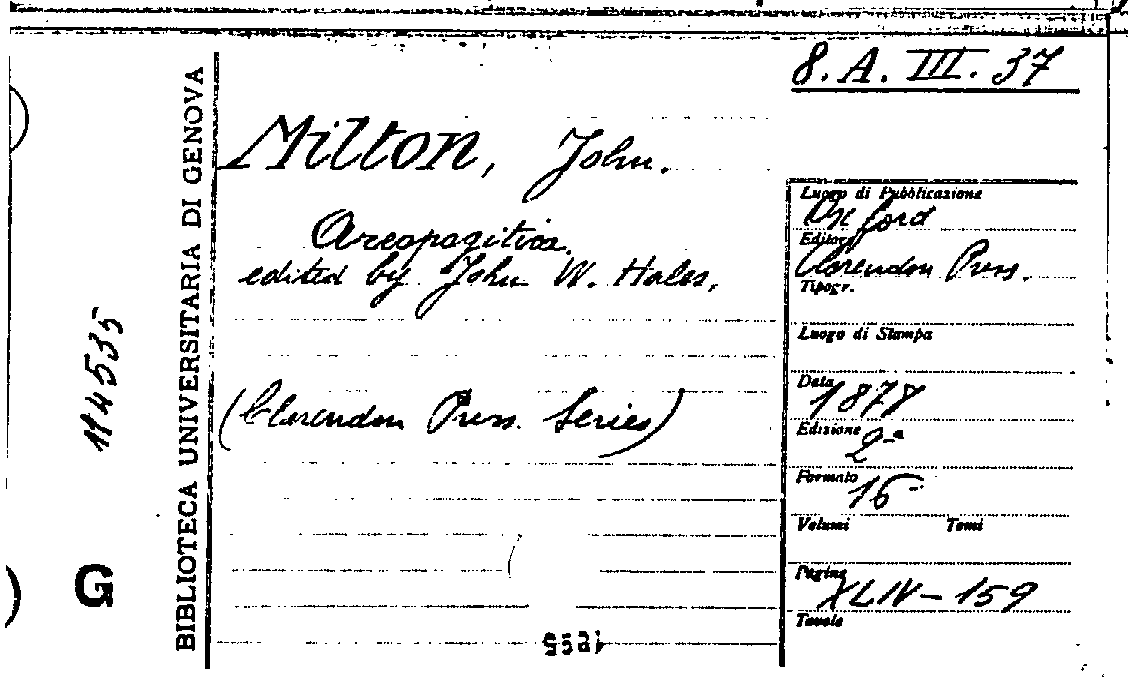 8. A. III. 37
Milton, John.
Areopagitica,
edited by John W. Hales,
(Clarendon Press Series)
Luogo di Pubblicazione
Oxford
Editore
Clarendon Press.
Tipogr.
Luogo di Stampa
Data
1878
Edizione
2ª
Formato
16
Volumi Tomi
Pagine
XLIV-159
Tavole
BIBLIOTECA UNIVERSITARIA DI GENOVA
114535
G